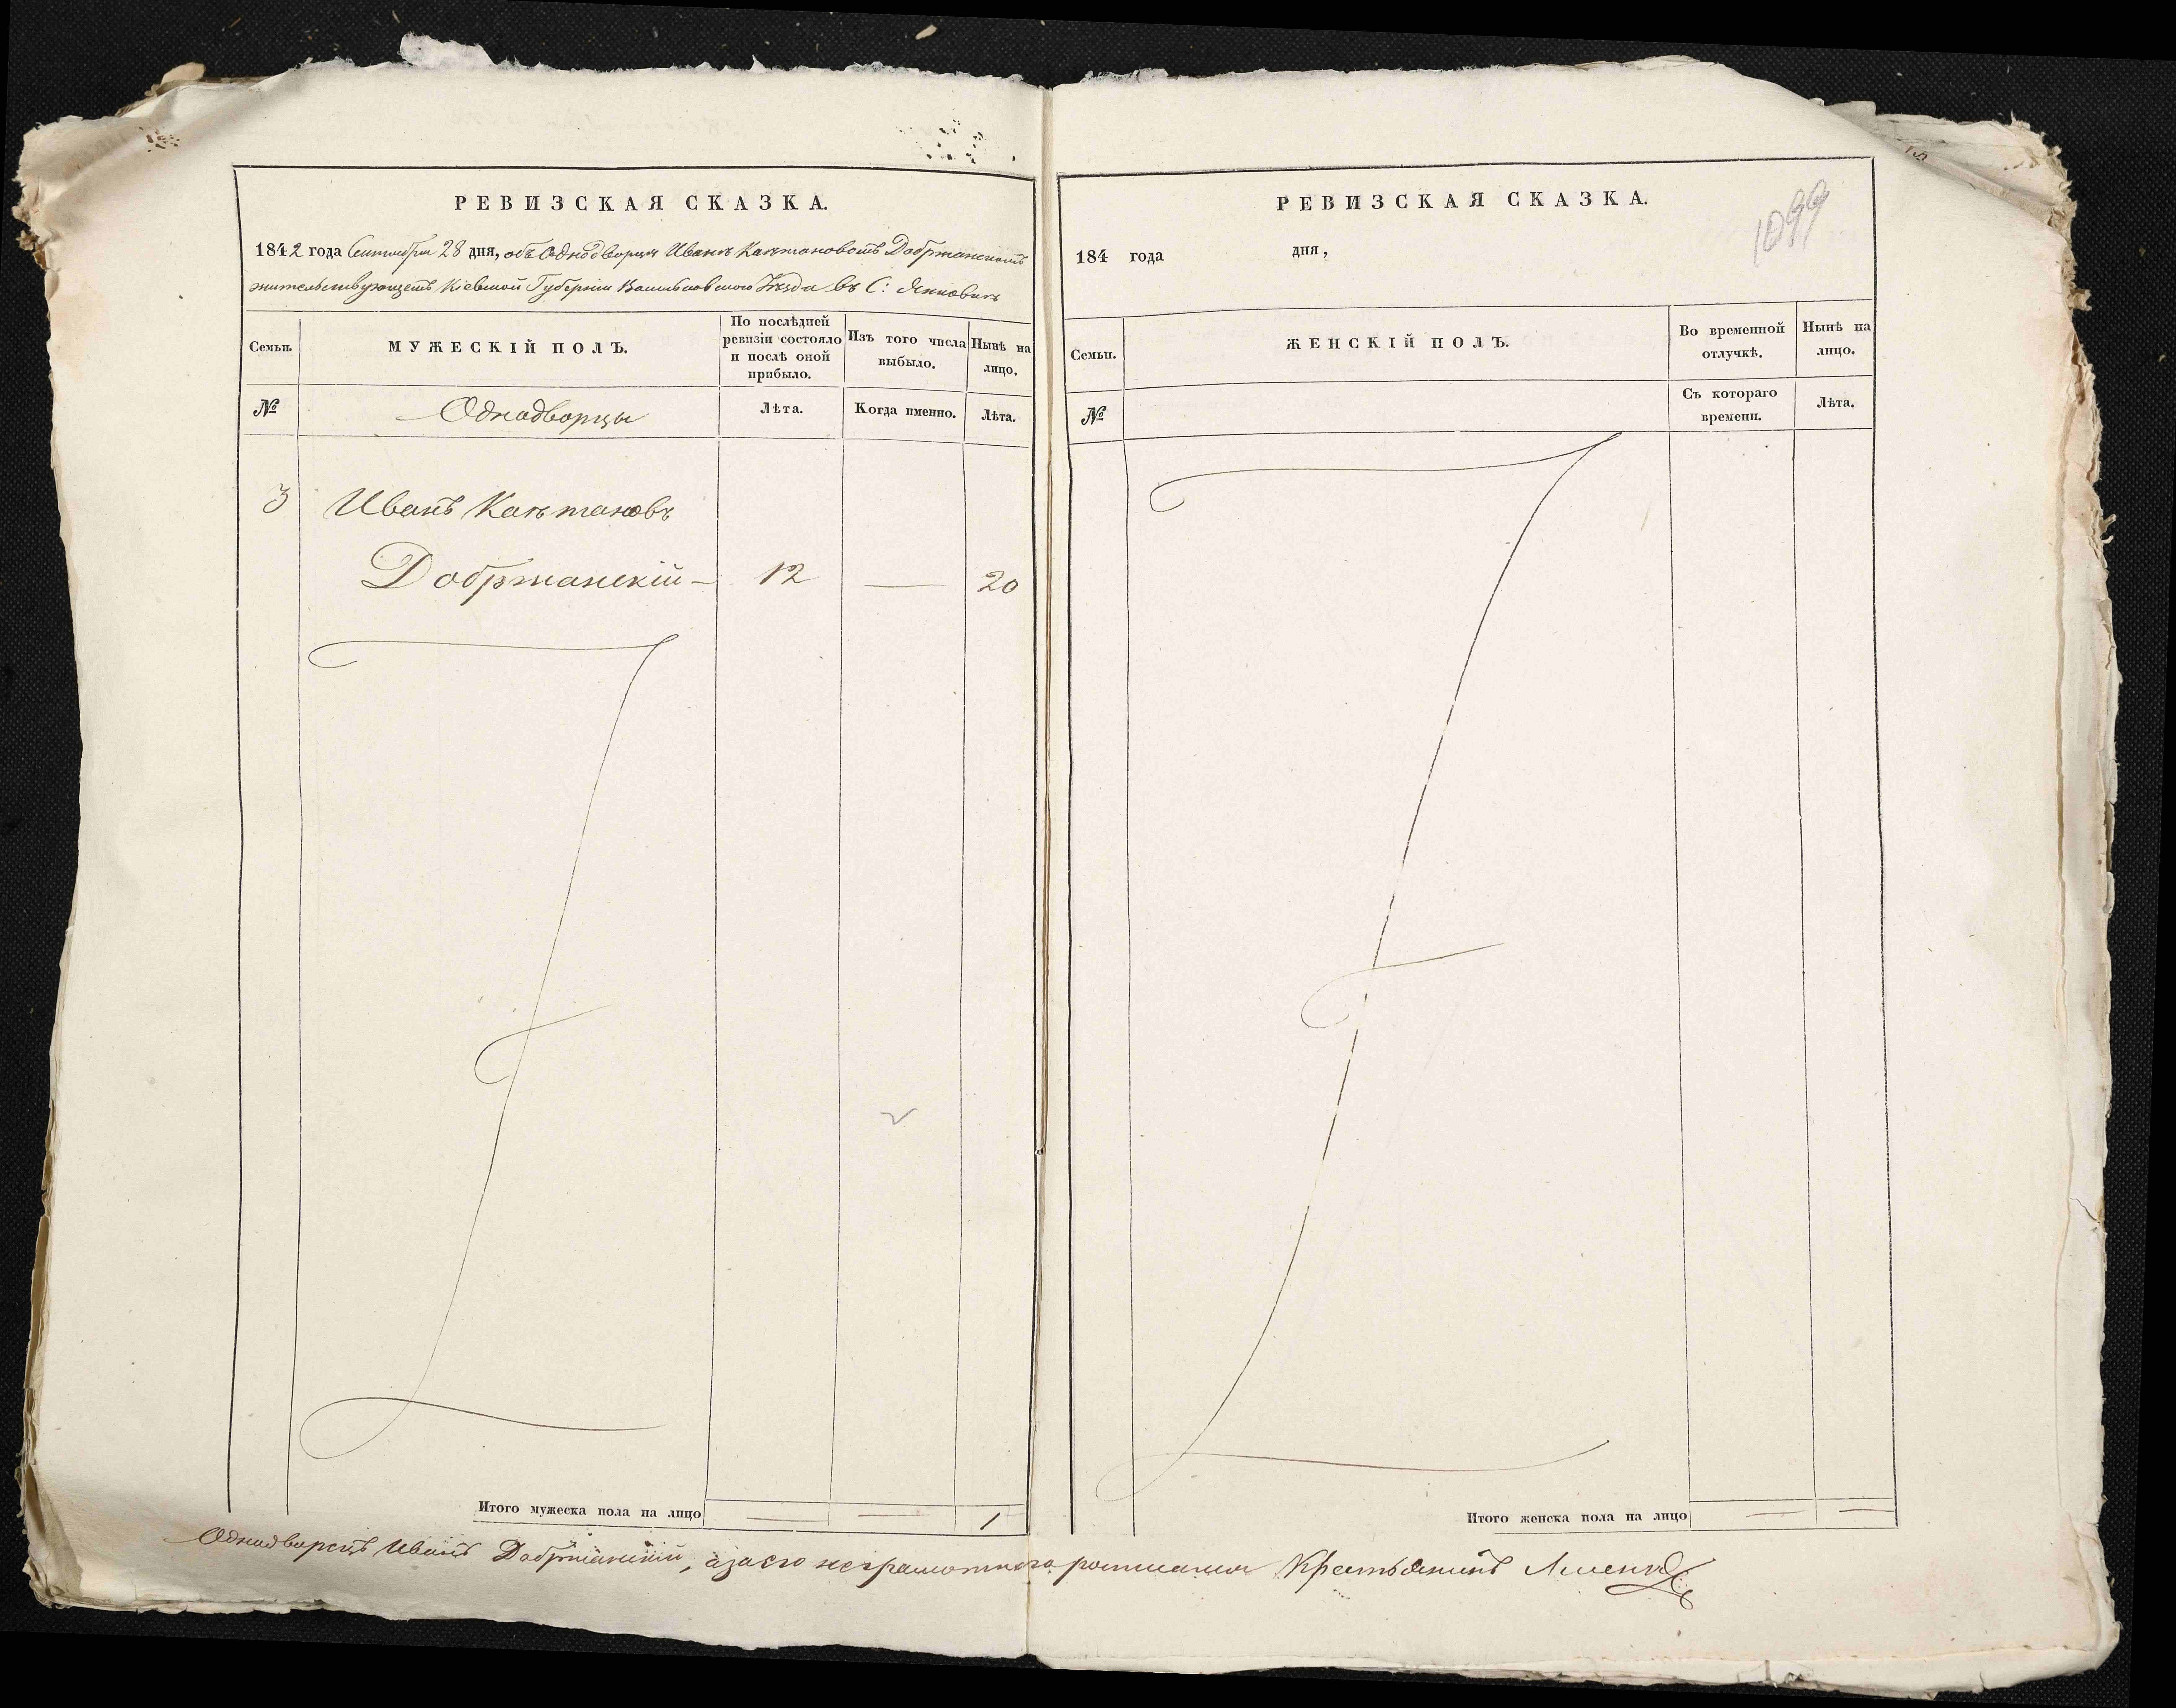 РЕВИЗСКАЯ СКАЗКА.
1842 года Сентября 28 дня, объ Однодворцѣ Иванѣ Каетановомъ Добржанскомъ
жительствующемъ Кіевской Губерніи Васильковского Уѣзда въ С:
Семьи.
МУЖЕСКІЙ ПОЛЪ.
По послѣдней ревизіи состояло и послѣ оной прибыло.
Изъ того числа выбыло.
Нынѣ на лицо.
№
Однодворцы
Лѣта.
Когда именно.
Лѣта.
3 Иванъ Каэтановъ
Добржанскій — 12 — 20
Итого мужеска пола на лицо — — 1
РЕВИЗСКАЯ СКАЗКА.
1099
184 года дня,
Семьи.
ЖЕНСКІЙ ПОЛЪ.
Во временной отлучкѣ.
Нынѣ на лицо.
№
Съ котораго времени.
Лѣта.
Итого женска пола на лицо — —
Однодворецъ Иванъ Добржанскій, а за его неграмотного росписался Крестьянинъ